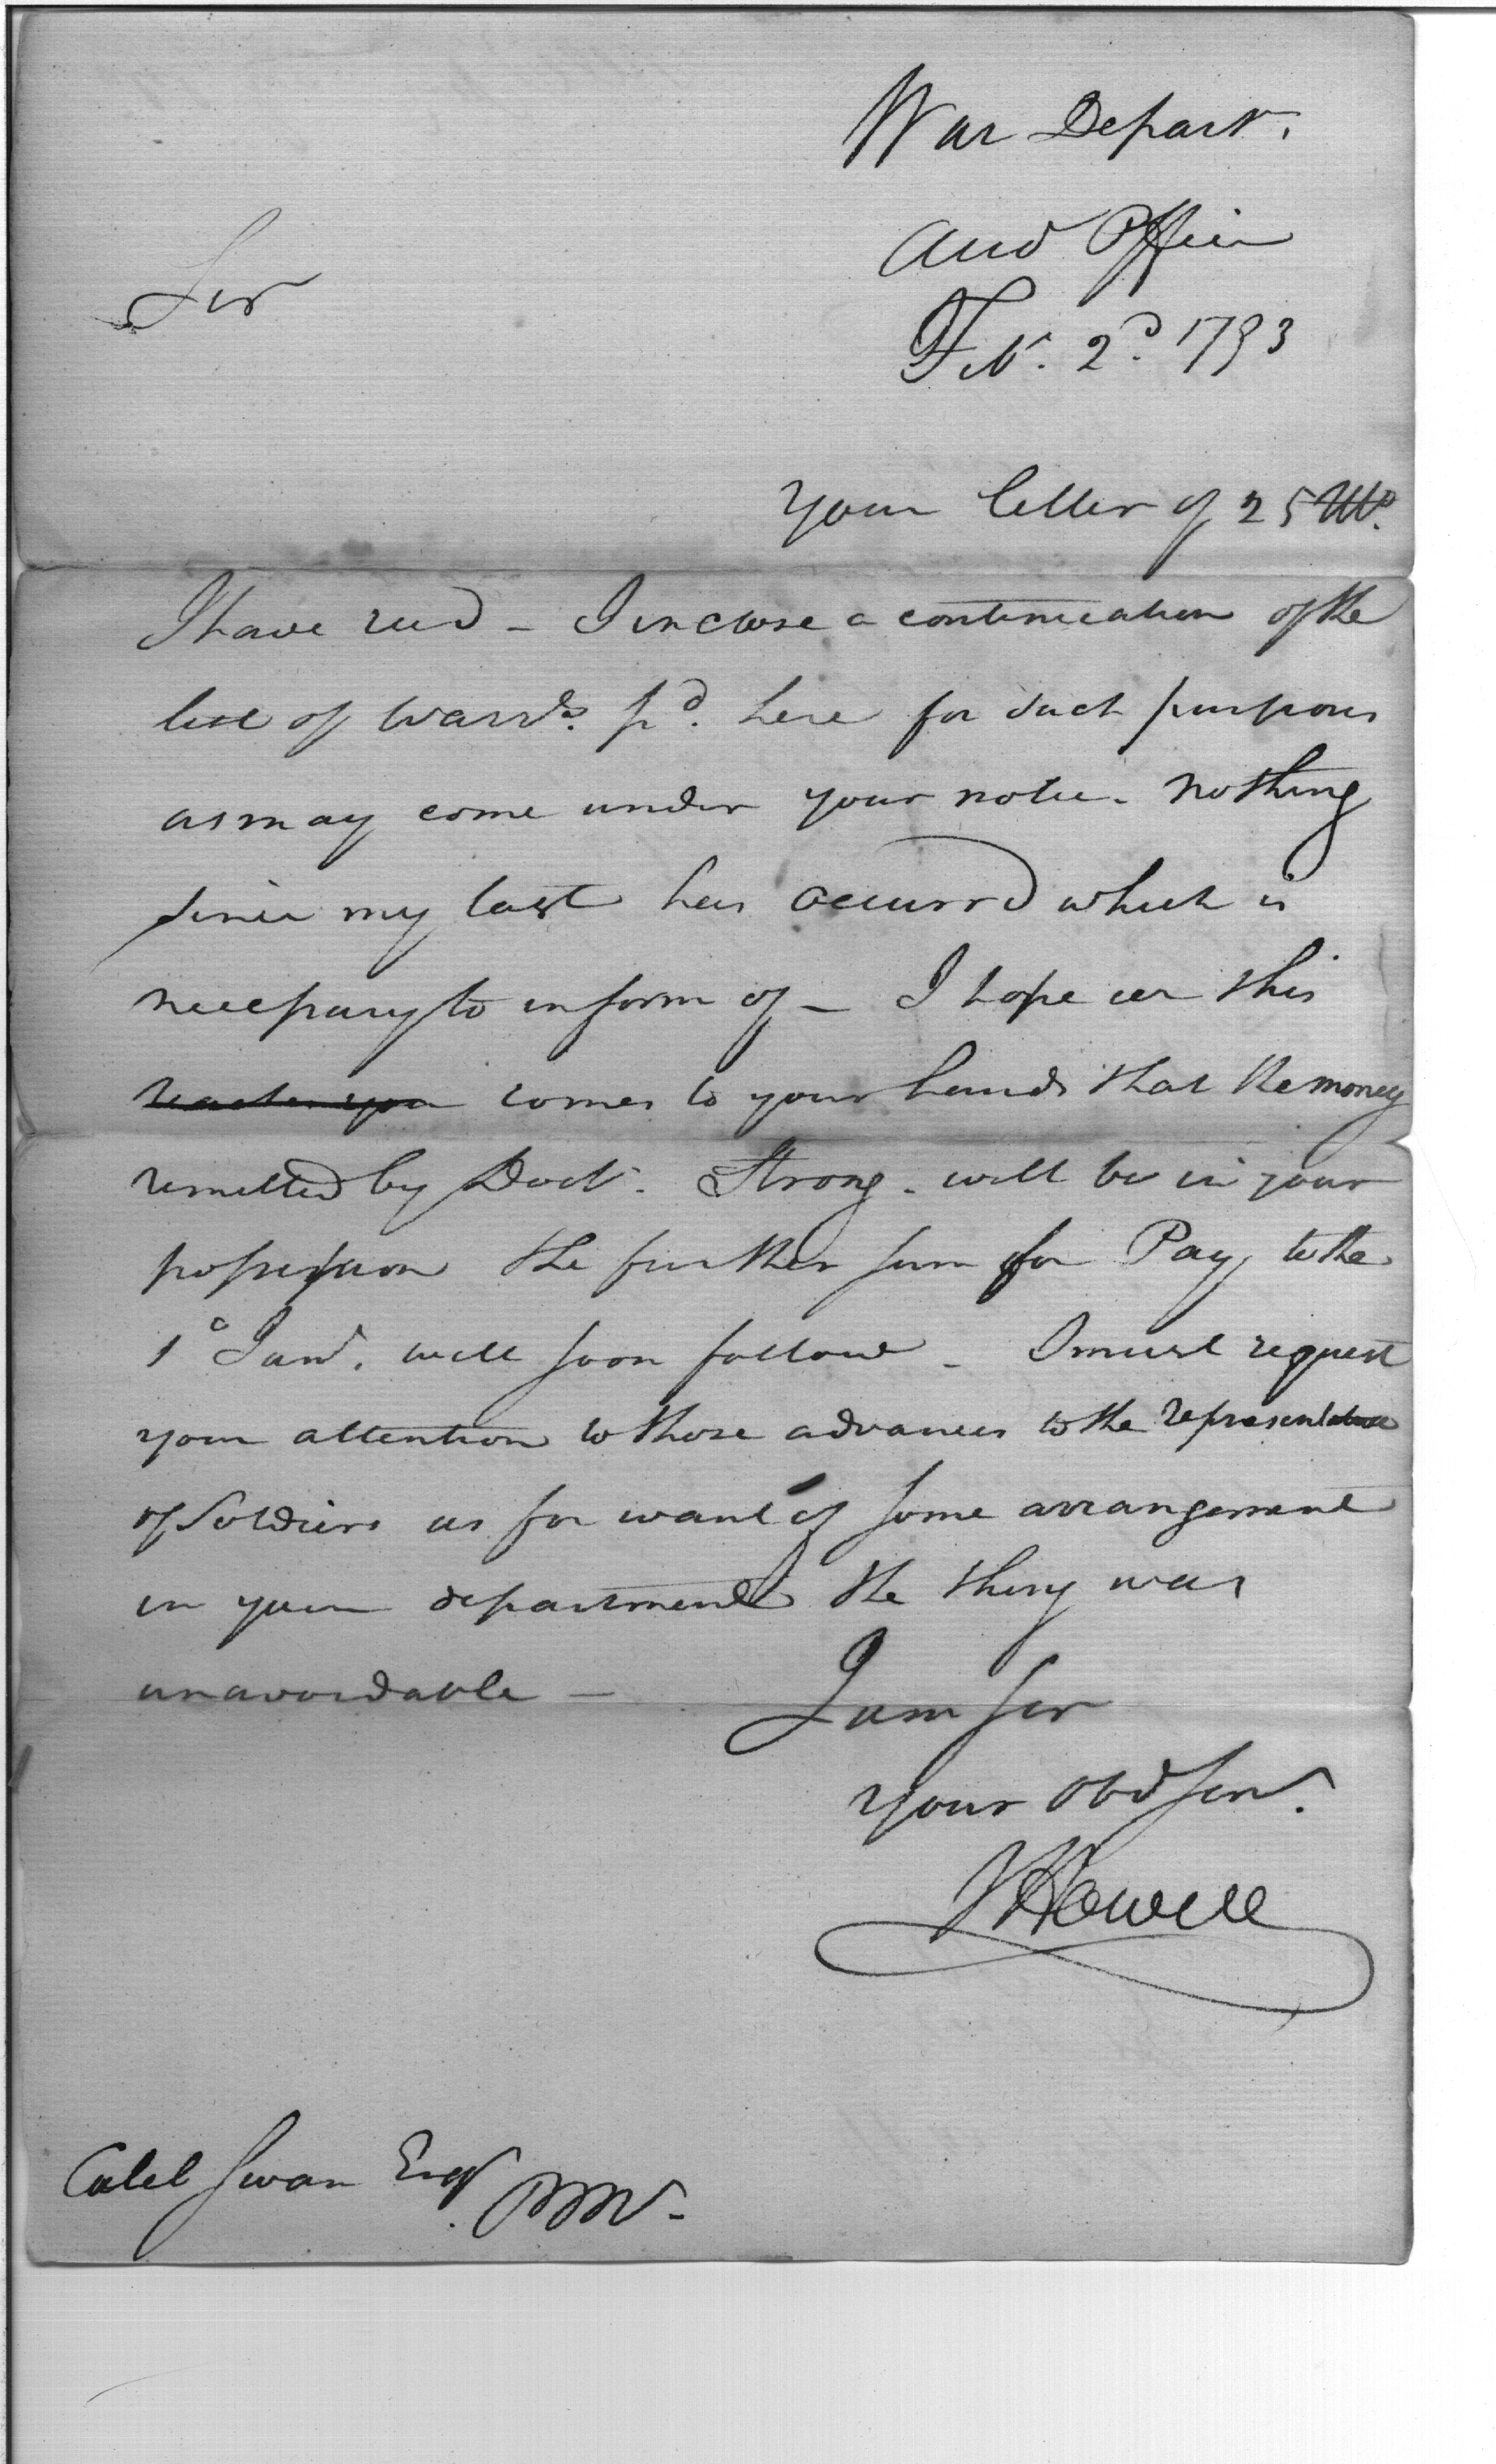 War Depart.
Aud Office
Sir
Feb. 2d. 1793
Your letter of 25 Ulto.
I have recd - I inclose a continuation of the
list of Warrts. pd. here for such purposes
as may come under your notice. Nothing
since my last has occurrd which is
necessary to inform of - I hope eer this
reaches you comes to your hands that the money
remitted by Doctr. Strong. will be in your
possession the further sum for Pay, to the
1o Jany. will soon follow - I must request
your attention to those advances to the representative
of Soldiers as for want of some arrangement
in your department the thing was
unavoidable -
I am Sir
Your Obd Servt.
J Howell
Caleb Swan Esqr. PMr.